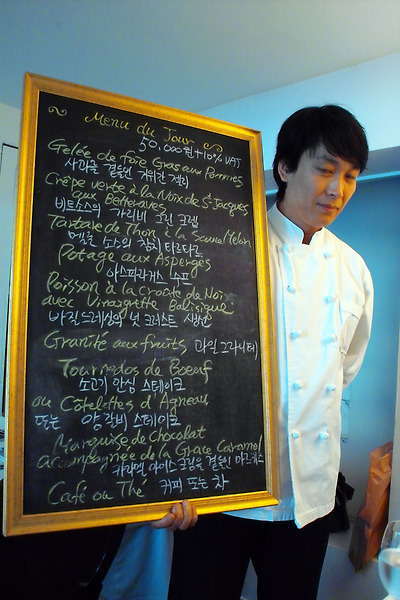 Menu du Jour
50,000원+10% VAT
Gelée de foie Gras aux Pommes
사과을 곁들인 거위간 젤리
Crêpe verte à la Noix de St Jacques
aux Betteraves
비트소스의 가리비 그린 크렙
Tartare de Thon à la Sauce Melon
멜론 소스의 참치 타르타르
Potage aux Asperges
아스파라거스 수프
Poisson à la croûte de Noix
avec Vinaigrette Balisique
바질드레싱의 넛 크러스트 생선
Granité aux fruits 과일 그라니테
Tournedos de Boeuf
소고기 안심 스테이크
ou Côtelettes d'Agneau
또는 양 갈비 스테이크
Marquise de Chocolat
accompagnée de la Grace Caramel
카라멜 아이스크림을 곁들인 마르키스
Café ou Thé 커피 또는 차